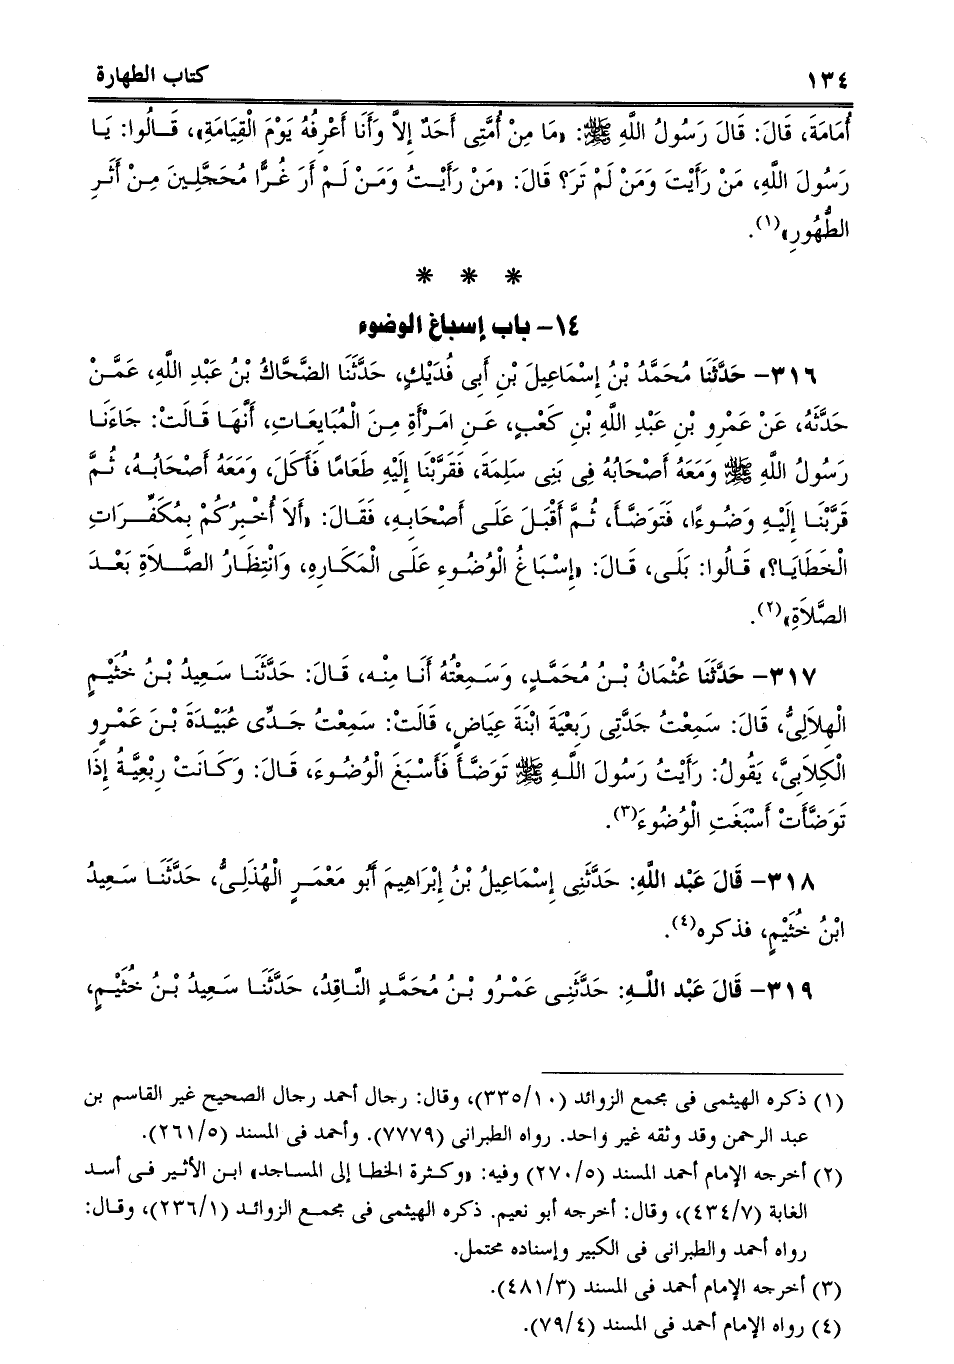 ١٣٤ كتاب الطهارة
أُمَامَةَ، قَالَ: قَالَ رَسُولُ اللَّهِ ﷺ: «مَا مِنْ أُمَّتِى أَحَدٌ إِلاَّ وَأَنَا أَعْرِفُهُ يَوْمَ الْقِيَامَةِ»، قَالُوا: يَا
رَسُولَ اللَّهِ، مَنْ رَأَيْتَ وَمَنْ لَمْ تَرَ؟ قَالَ: «مَنْ رَأَيْتُ وَمَنْ لَمْ أَرَ غُرًّا مُحَجَّلِينَ مِنْ أَثَرِ
الطُّهُورِ»(١).
* * *
١٤- باب إسباغ الوضوء
٣١٦- حَدَّثَنَا مُحَمَّدُ بْنُ إِسْمَاعِيلَ بْنِ أَبِى فُدَيْكٍ، حَدَّثَنَا الضَّحَّاكُ بْنُ عَبْدِ اللَّهِ، عَمَّنْ
حَدَّثَهُ، عَنْ عَمْرِو بْنِ عَبْدِ اللَّهِ بْنِ كَعْبٍ، عَنِ امْرَأَةٍ مِنَ الْمُبَايَعَاتِ، أَنَّهَا قَالَتْ: جَاءَنَا
رَسُولُ اللَّهِ ﷺ وَمَعَهُ أَصْحَابُهُ فِى بَنِى سَلِمَةَ، فَقَرَّبْنَا إِلَيْهِ طَعَامًا فَأَكَلَ، وَمَعَهُ أَصْحَابُهُ، ثُمَّ
قَرَّبْنَا إِلَيْهِ وَضُوءًا، فَتَوَضَّأَ، ثُمَّ أَقْبَلَ عَلَى أَصْحَابِهِ، فَقَالَ: «أَلاَ أُخْبِرُكُمْ بِمُكَفِّرَاتِ
الْخَطَايَا؟» قَالُوا: بَلَى، قَالَ: «إِسْبَاغُ الْوُضُوءِ عَلَى الْمَكَارِهِ، وَانْتِظَارُ الصَّلاَةِ بَعْدَ
الصَّلاَةِ»(٢).
٣١٧- حَدَّثَنَا عُثْمَانُ بْنُ مُحَمَّدٍ، وَسَمِعْتُهُ أَنَا مِنْه، قَالَ: حَدَّثَنَا سَعِيدُ بْنُ خُثَيْمٍ
الْهِلاَلِىُّ، قَالَ: سَمِعْتُ جَدَّتِى رَبِعْيَةَ ابْنَةَ عِيَاضٍ، قَالَتْ: سَمِعْتُ جَدِّى عُبَيْدَةَ بْنَ عَمْرٍو
الْكِلاَبِىَّ، يَقُولُ: رَأَيْتُ رَسُولَ اللَّهِ ﷺ تَوَضَّأَ فَأَسْبَغَ الْوُضُوءَ، قَالَ: وَكَانَتْ رِبْعِيَّةُ إِذَا
تَوَضَّأَتْ أَسْبَغَتِ الْوُضُوءَ(٣).
٣١٨- قَالَ عَبْد اللَّهِ: حَدَّثَنِى إِسْمَاعِيلُ بْنُ إِبْرَاهِيمَ أَبُو مَعْمَرٍ الْهُذَلِىُّ، حَدَّثَنَا سَعِيدُ
ابْنُ خُثَيْمٍ، فذكره(٤).
٣١٩- قَالَ عَبْد اللَّهِ: حَدَّثَنِى عَمْرُو بْنُ مُحَمَّدٍ النَّاقِدُ، حَدَّثَنَا سَعِيدُ بْنُ خُثَيْمٍ،
(١) ذكره الهيثمى فى مجمع الزوائد (٣٣٥/١٠)، وقال: رجال أحمد رجال الصحيح غير القاسم بن
عبد الرحمن وقد وثقه غير واحد. رواه الطبرانى (٧٧٧٩). وأحمد فى المسند (٢٦١/٥).
(٢) أخرجه الإمام أحمد المسند (٢٧٠/٥) وفيه: «وكثرة الخطا إلى المساجد» ابن الأثير فى أسد
الغابة (٤٣٤/٧)، وقال: أخرجه أبو نعيم. ذكره الهيثمى فى مجمع الزوائد (٢٣٦/١)، وقال:
رواه أحمد والطبرانى فى الكبير وإسناده محتمل.
(٣) أخرجه الإمام أحمد فى المسند (٤٨١/٣).
(٤) رواه الإمام أحمد فى المسند (٧٩/٤).